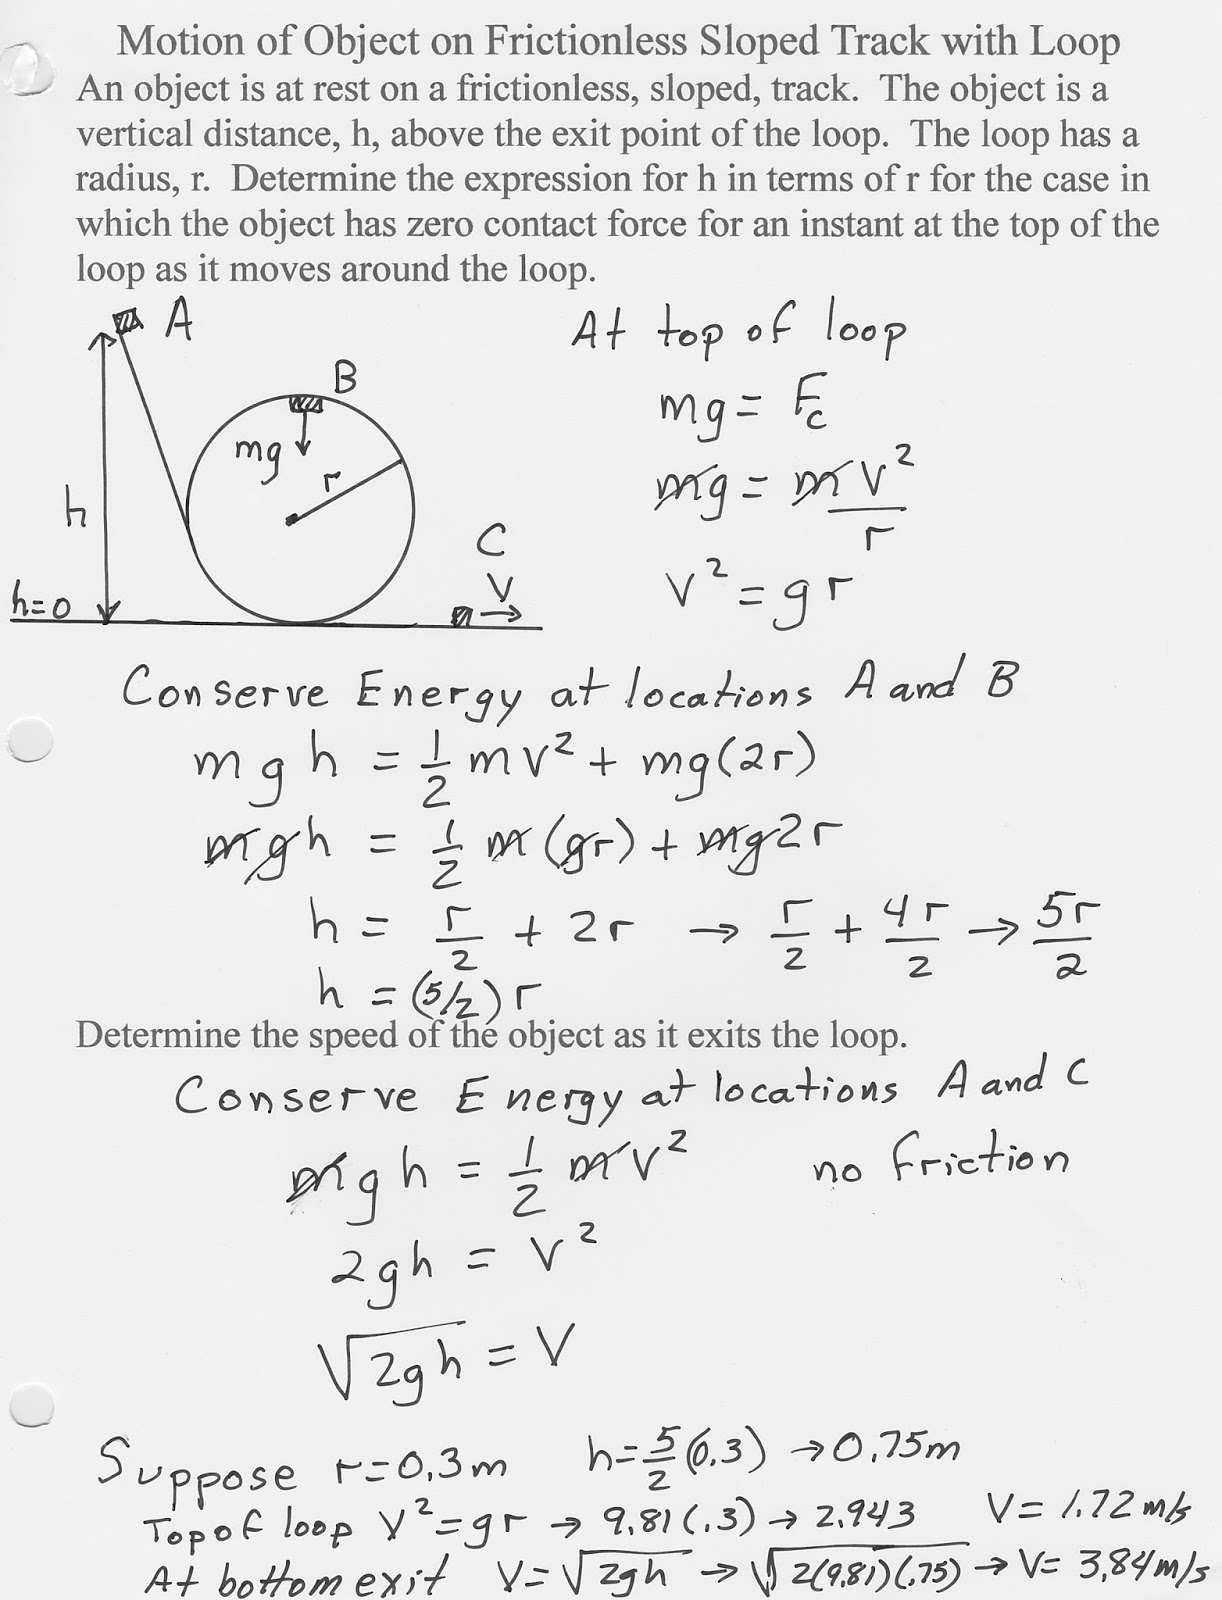 Motion of Object on Frictionless Sloped Track with Loop
An object is at rest on a frictionless, sloped, track. The object is a
vertical distance, h, above the exit point of the loop. The loop has a
radius, r. Determine the expression for h in terms of r for the case in
which the object has zero contact force for an instant at the top of the
loop as it moves around the loop.
A
B
mg
r
h
C
V
h=0
At top of loop
mg = Fc
mg = mv²/r
v² = gr
Conserve Energy at locations A and B
mgh = 1/2 mv² + mg(2r)
mgh = 1/2 m(gr) + mg2r
h = r/2 + 2r → r/2 + 4r/2 → 5r/2
h = (5/2)r
Determine the speed of the object as it exits the loop.
Conserve Energy at locations A and C
mgh = 1/2 mv² no friction
2gh = v²
√2gh = V
Suppose r=0.3m h=5/2(0.3) →0.75m
Top of loop V²=gr → 9.81(.3) → 2.943 V= 1.72 m/s
At bottom exit V=√2gh → √2(9.81)(.75) → V= 3.84 m/s